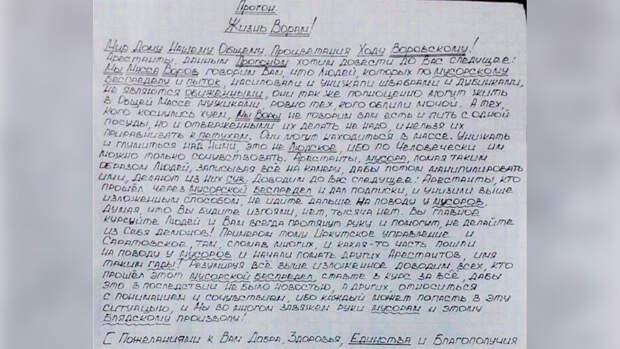 Прогон.
Жизнь Ворам!
Мир Дому Нашему Общему, Процветания Ходу Воровскому!
Арестанты, данным Прогоном хотим довести до Вас следущее:
Мы Масса Воров говорим Вам, что людей, которых по мусорскому
беспределу и пыток, насиловали и унижали швабрами и дубинками,
не являются обиженными, они так же полноценно могут жить
в Общей Массе мужиками, ровно тех кого облили мочой. А тех,
кого коснулись хуем, Мы Воры не говорим Вам есть и пить с одной
посуды, но и отваженными их делать не надо, и нельзя их
приравнивать к петухам. Они могут находиться в массе. Унижать
и глумиться над ними, это не Людское, ибо по Человечески им
можно только сочувствовать. Арестанты, мусора, ломая таким
образом Людей, записывая всё на камеры, дабы потом манипулировать
ими, делают из них сук. Доводим до Вас следущее: Арестанты, кто
прошёл через мусорской беспредел и дал подписки, и унизили выше
изложенным способом, не идите дальше на поводу у мусоров.
Думая, что Вы будите изгоями, нет, тысяча нет. Вы главное
курсуйте Людей и Вам всегда протянут руку и помогут, не делайте
из себя демонов! Примером тому Иркутское управление
Саратовское, там, сломав многих, и какая-то часть пошли
на поводу у мусоров и начали ломать других Арестантов, имя
таким гады! Резюмируя всё выше изложенное доводим всех, кто
прошёл этот мусорской беспредел, ставте в курс за всё, дабы
это в последствии не было новостью, а других, относиться
с пониманием и сочувствием, ибо каждый может попасть в эту
ситуацию, и Мы во многом завяжем руки мусорам и этому
Блядскому произволу!
С Пожеланиями к Вам Добра, Здоровья, Единства и Благополучия